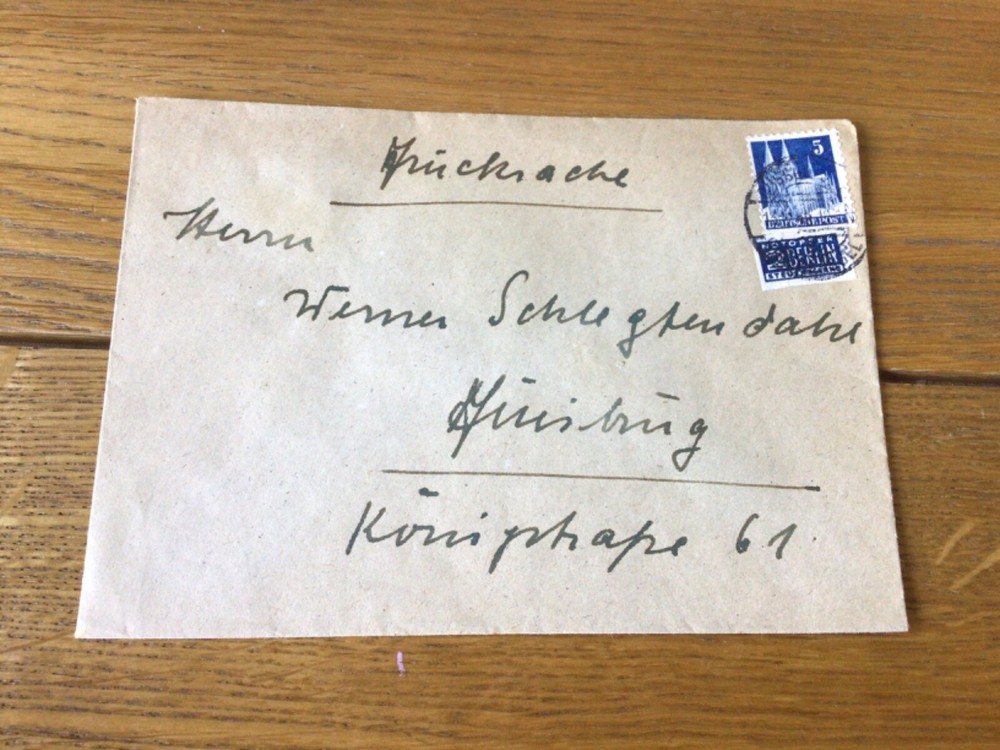 Drucksache
5
DEUTSCHE POST
NOTOPFER
2 BERLIN
STEUERMARKE
Herrn
Werner Schlegtendahl
Duisburg
Königstraße 61